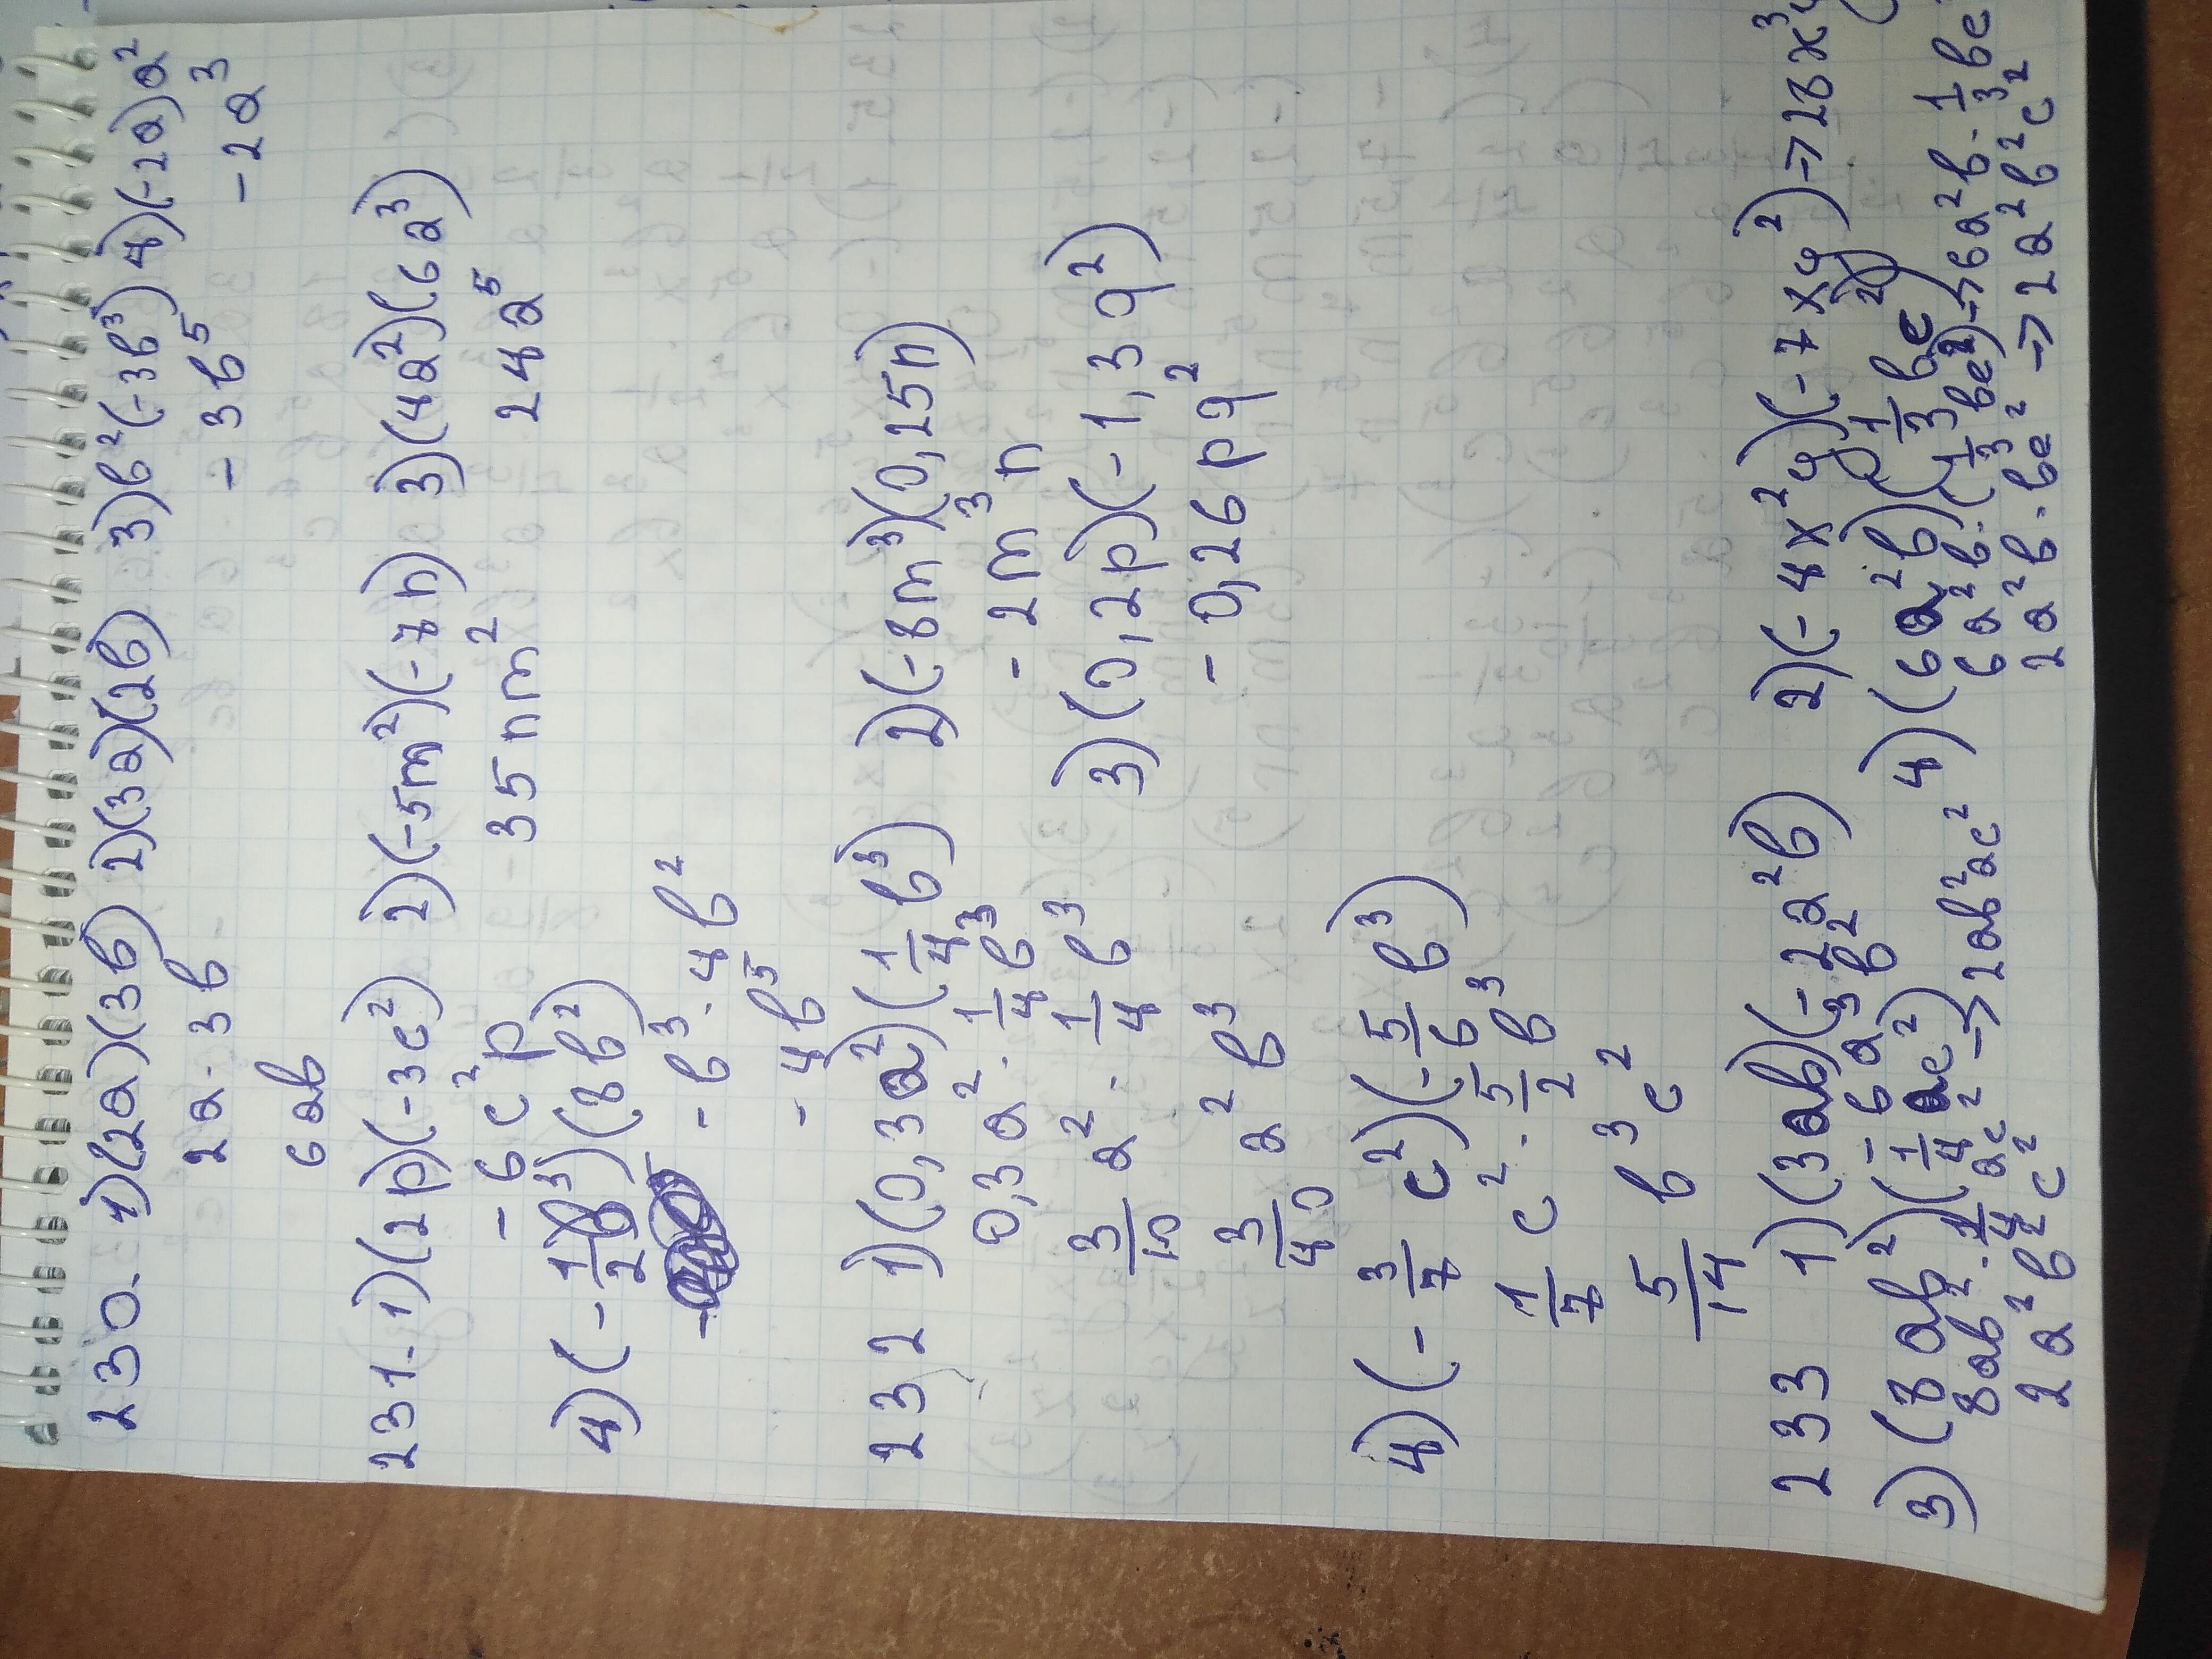 230. 1)(2a)(3b) 2)(3a)(2b) 3)b²(-3b³) 4)(-2a)a²
2a·3b -3b⁵ -2a³
6ab
231. 1)(2p)(-3c²) 2)(-5m²)(-7n) 3)(4a²)(6a³)
-6c²p 35nm² 24a⁵
4)(-1/2b³)(8b²)
-b³·4b²
-4b⁵
232 1)(0,3a²)(1/4b³) 2)(-8m³)(0,25n)
0,3a²·1/4b³ -2m³n
3/10 a²·1/4 b³ 3)(0,2p)(-1,3q²)
3/40 a²b³ -0,26pq²
4)(-3/7 c²)(-5/6 b³)
1/7 c²·5/2 b³
5/14 b³c²
233 1)(3ab)(-2a²b) 2)(-4x²y)(-7xy²)→28x³
-6a³b²
3)(8ab²)(1/4ac²) 4)(6a²b)(1/3bc²)
8ab²·1/4ac²→2ab²ac² 6a²b·(1/3bc²)→6a²b·1/3bc
2a²b²c² 2a²b·bc²→2a²b²c²